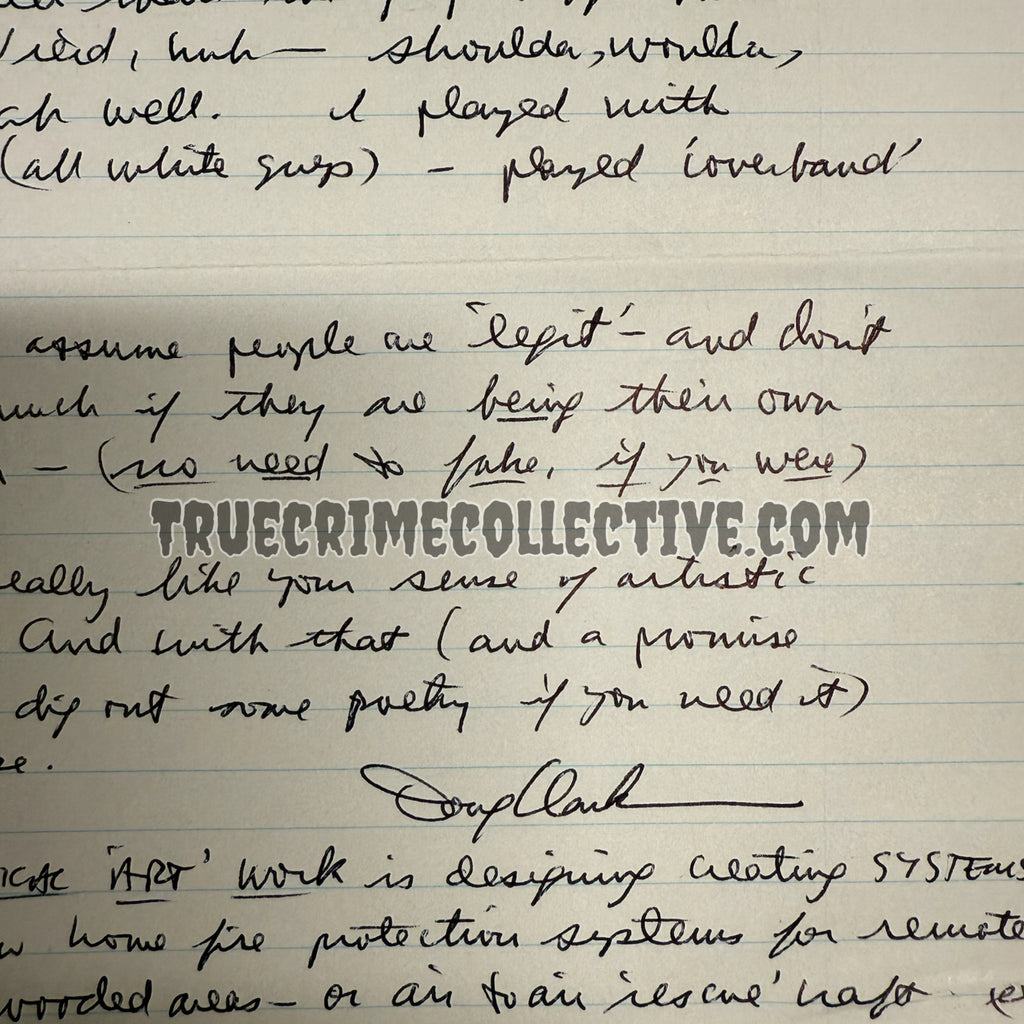 huh — shoulda, woulda,
well. I played with
(all white guys) – played 'coverband'
assume people are 'legit' – and don't
much if they are being their own
– (no need to fake, if you were)
TRUECRIMECOLLECTIVE.COM
really like your sense of artistic
And with that (and a promise
dig out some poetry if you need it)
Doug Clark
'ART' work is designing creating SYSTEMS
home fire protection systems for remote
wooded areas – or air to air 'rescue' craft